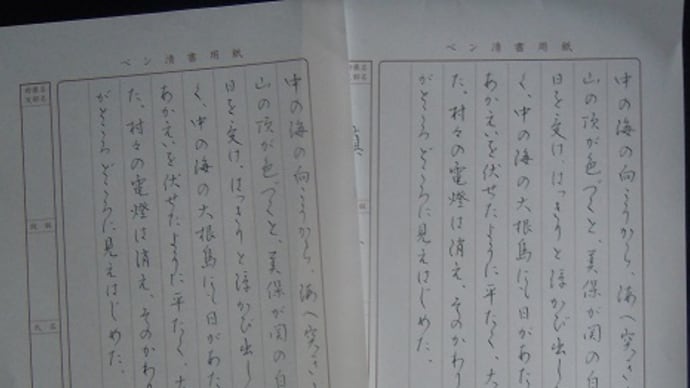 ペン清書用紙
中の海の向こうから、海へ突っさ
山の頂が色づくと、美保が関の白
日を受け、はっきりと浮かび出し
く、中の海の大根島にも日があた
あかえいを伏せたように平たく、大
た。村々の電燈は消え、そのかわり
がところどころに見えはじめた。
氏名
ペン清書用紙
中の海の向こうから、海へ突っさ
山の頂が色づくと、美保が関の白
日を受け、はっきりと浮かび出し
く、中の海の大根島にも日があた
あかえいを伏せたように平たく、大
た。村々の電燈は消え、そのかわり
がところどころに見えはじめた。